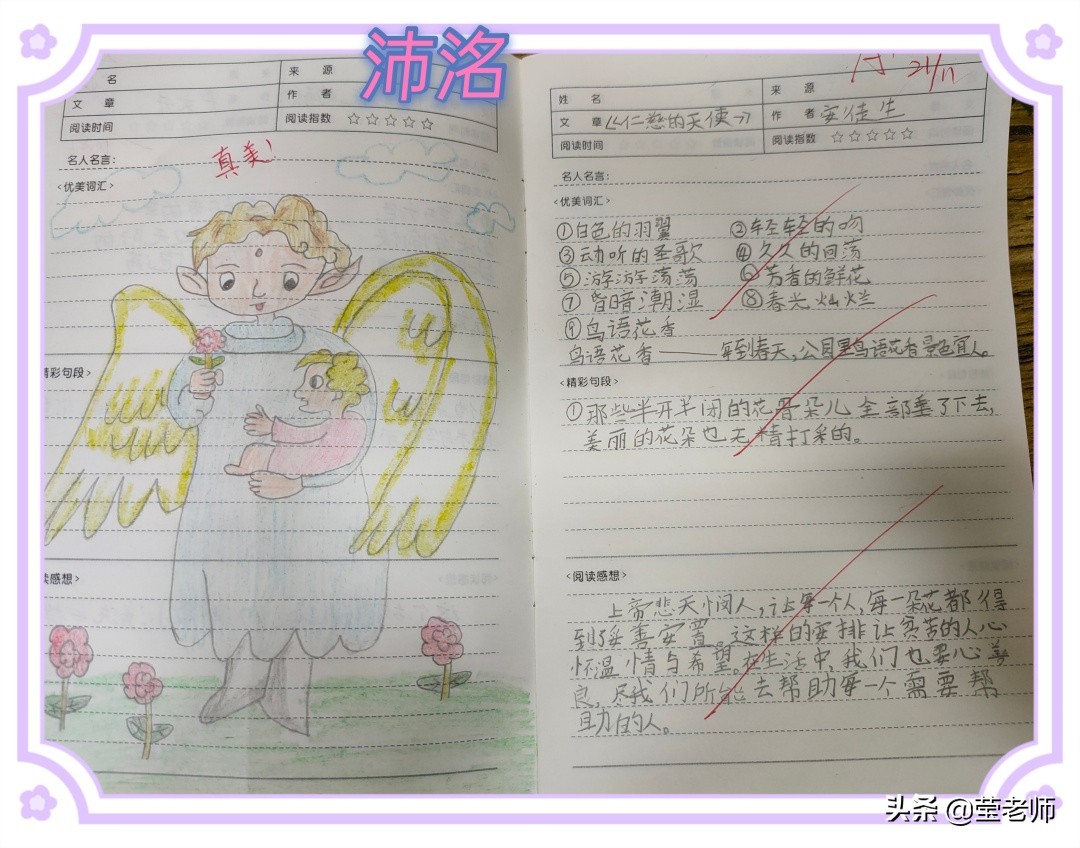 沛洺
名
来 源
文 章
作 者
阅读时间
阅读指数 ☆☆☆☆☆
名人名言:
真美!
<优美词汇>
精彩句段>
读感想>
21/11
姓 名
来 源
文 章 《仁慈的天使》
作 者 安徒生
阅读时间
阅读指数 ☆☆☆☆☆
名人名言:
<优美词汇>
①白色的羽翼 ②轻轻的吻
③动听的圣歌 ④久久的回荡
⑤游游荡荡 ⑥芳香的鲜花
⑦昏暗潮湿 ⑧春光灿烂
⑨鸟语花香
鸟语花香——每到春天,公园里鸟语花香景色宜人。
<精彩句段>
①那些半开半闭的花骨朵儿全部垂了下去,
美丽的花朵也无精打采的。
<阅读感想>
上帝悲天悯人,让每一个人,每一朵花都得
到妥善安置。这样的安排让贫苦的人心
怀温情与希望。在生活中,我们也要心善
良,尽我们所能去帮助每一个需要帮
助的人。
头条 @莹老师